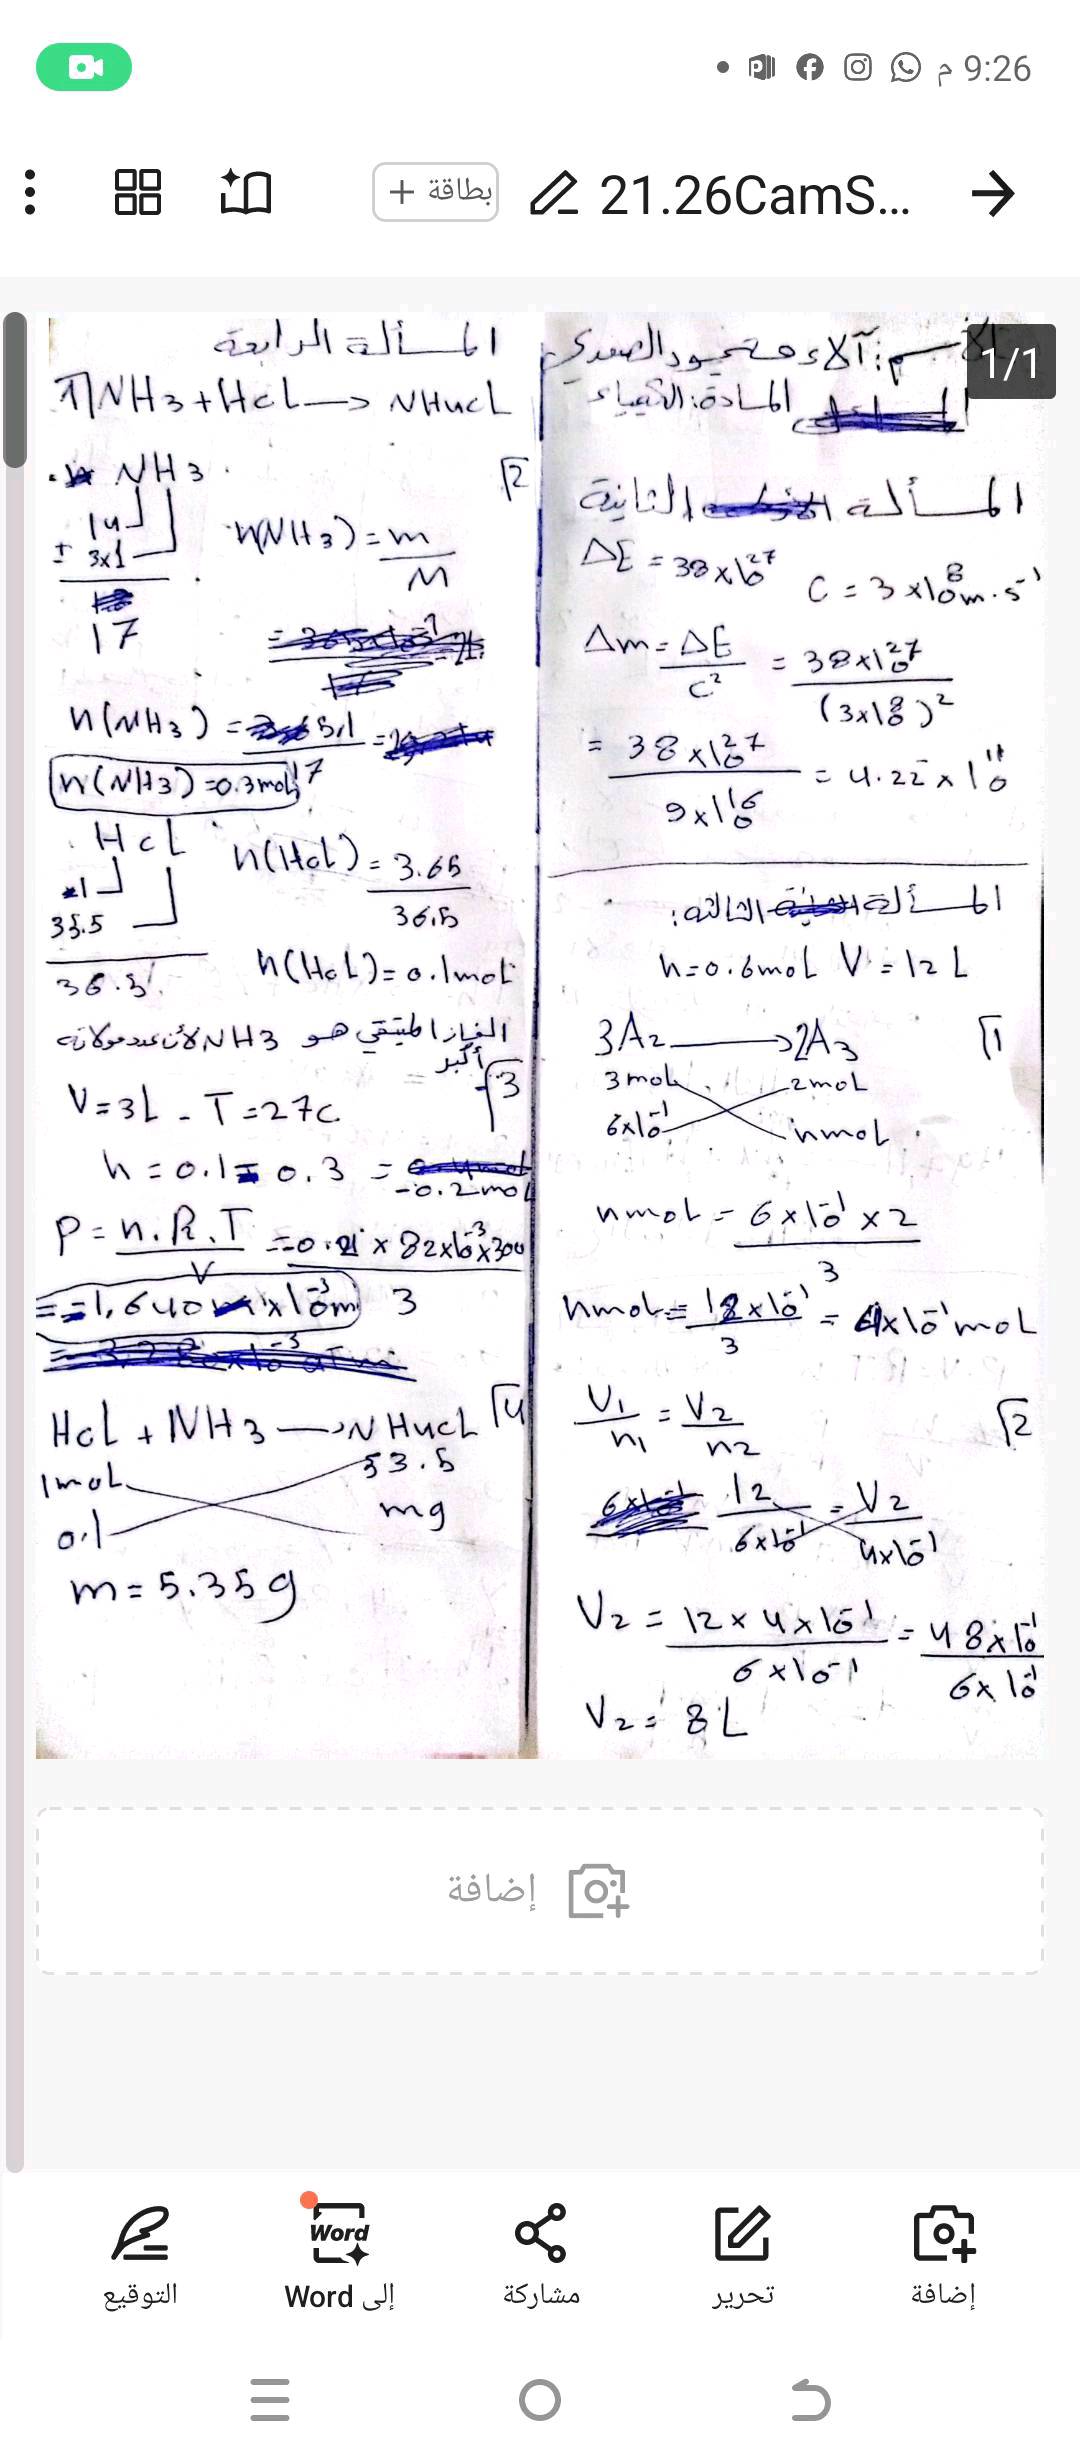 9:26 م
21.26CamS...
بطاقة +
1/1
الاسم: آلاء محمود الصعدي
المادة: الكيمياء
المسألة الثانية
ΔE = 38×10²⁷ C = 3×10⁸ m.s⁻¹
Δm = ΔE / c² = 38×10²⁷ / (3×10⁸)²
= 38×10²⁷ / 9×10¹⁶ = 4.22×10¹¹
المسألة الثالثه:
n=0.6mol V=12L
1
3A2 → 2A3
3mol 2mol
6×10⁻¹ nmol
nmol = 6×10⁻¹×2 / 3
nmol = 12×10⁻¹ / 3 = 4×10⁻¹ mol
2
V1 / n1 = V2 / n2
12 / 6×10⁻¹ = V2 / 4×10⁻¹
V2 = 12×4×10⁻¹ / 6×10⁻¹ = 48×10⁻¹ / 6×10⁻¹
V2 = 8L
المسألة الرابعة
1 NH3 + HcL → NH4cL
2
NH3
14
+ 3×1
17
n(NH3) = m / M
n(NH3) = 5.1 / 17
n(NH3) = 0.3mol
HcL
1
35.5
36.5
n(HcL) = 3.65 / 36.5
n(HcL) = 0.1mol
الغاز المتبقي هو NH3 لأن عدد مولاته أكبر
3
V=3L - T=27C
n = 0.1 - 0.3 = -0.2mol
P = n.R.T / V = -0.2 × 82×10⁻³×300 / 3
= -1,640 ×10⁻³
4
HcL + NH3 → NH4cL
1mol 53.5
0.1 mg
m = 5.35g
إضافة
التوقيع
Word
إلى Word
مشاركة
تحرير
إضافة